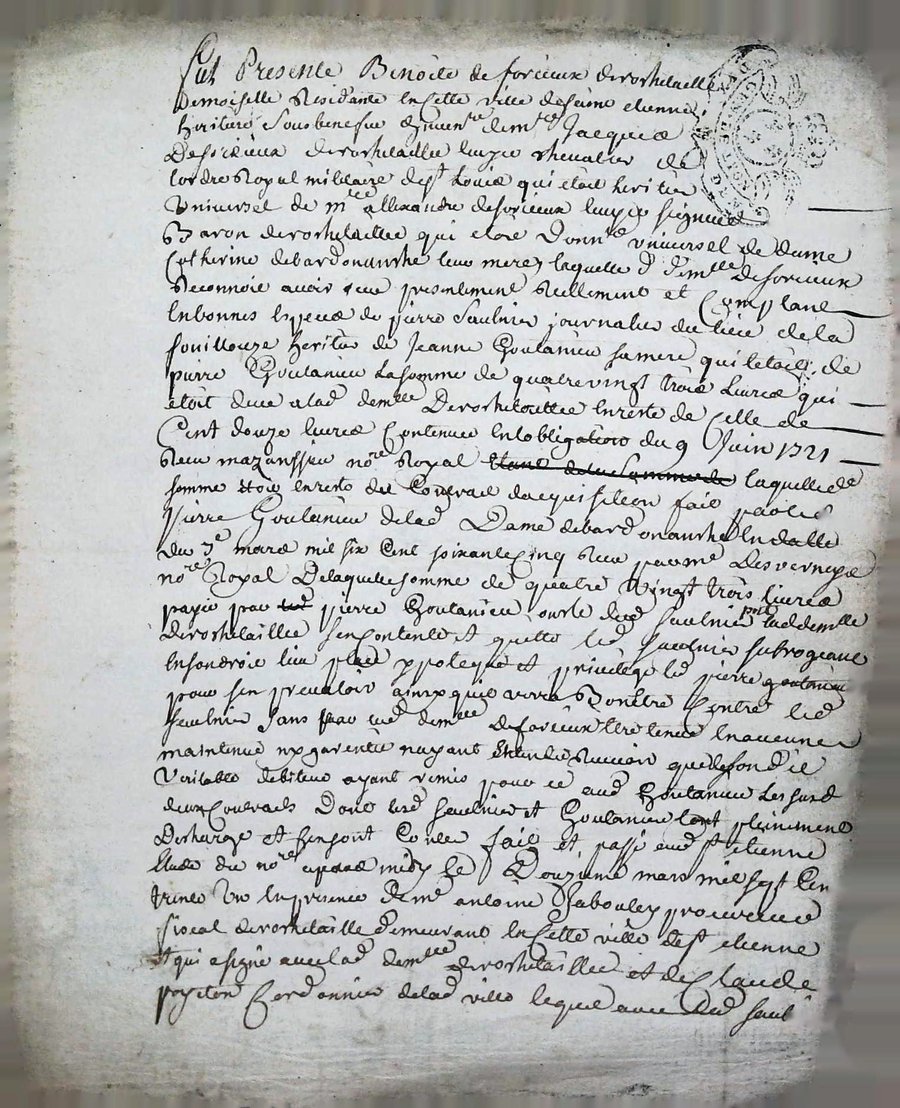 Fut Presente Benoite de forcieux derochetaillé
Demoiselle Residante En Cette ville de saint etienne
heritiere Sous benefice dinven.re de m.re Jacques
Deforcieux derochetaillée chevalier de
lordre Royal militaire de S.t Louis qui etoit heritier
Universel de m.re allexandre deforcieux seigneur
Baron derochetaillée qui etoit Donn.re universel de dame
Catherine debardonanche leur mere, laquelle d. demlle deforcieux
Reconnoit avoir receu presentement Reellement et Comptant
En bonnes Especes de pierre Saulnier journalier du lieu de la
fouillouze heritier de Jeanne Goutanieu sa mere qui letoit de
pierre Goutanieu La somme de quatre vingt trois Livres qui
étoit deue a lad. demlle Derochetaillée En reste de Celle de
Cent douze livres Contenue En lobligation du 9 Juin 1721
Receu mazenssieu no.re Royal Etant de la Somme de laquelle de
somme Etoit En reste du Contrat dacquisition fait par led.
pierre Goutanieu de lad. Dame debardonanche En datte
du 7.e mars mil six Cent soixante Cinq Receu par me Desverneys
no.re Royal De laquelle somme de quatre Vingt trois Livres
payée par led pierre Goutanieu ou led. saulnier pnt lad demlle
derochetaillée sen Contente et quitte led saulnier subrogeant
En son droit lieu place ypoteque et privilege led. pierre goutanieu
pour sen prevaloir ainsy quil verra Bon être Contre led
saulnier sans que lad. demlle deforcieux soit tenue En aucune
maintenue ny garentie nayant
Veritable debiteur ayant remis pour ce aud Goutanieu Les susd
deux Contrats Dont led. saulnier et Goutanieu pleinement
Decharge et Consent fait et passé aud S.t etienne
Etude du no.re apres midy le Douzieme mars mil sept Cen
trente Un En presence de m.e antoine Sabouley procureur
fiscal derochetaillé demeurant En Cette ville de S.t etienne
et qui a signé avec lad demlle derochetaillée et de Claude
Cordonnier de lad ville lequel avec led Saul